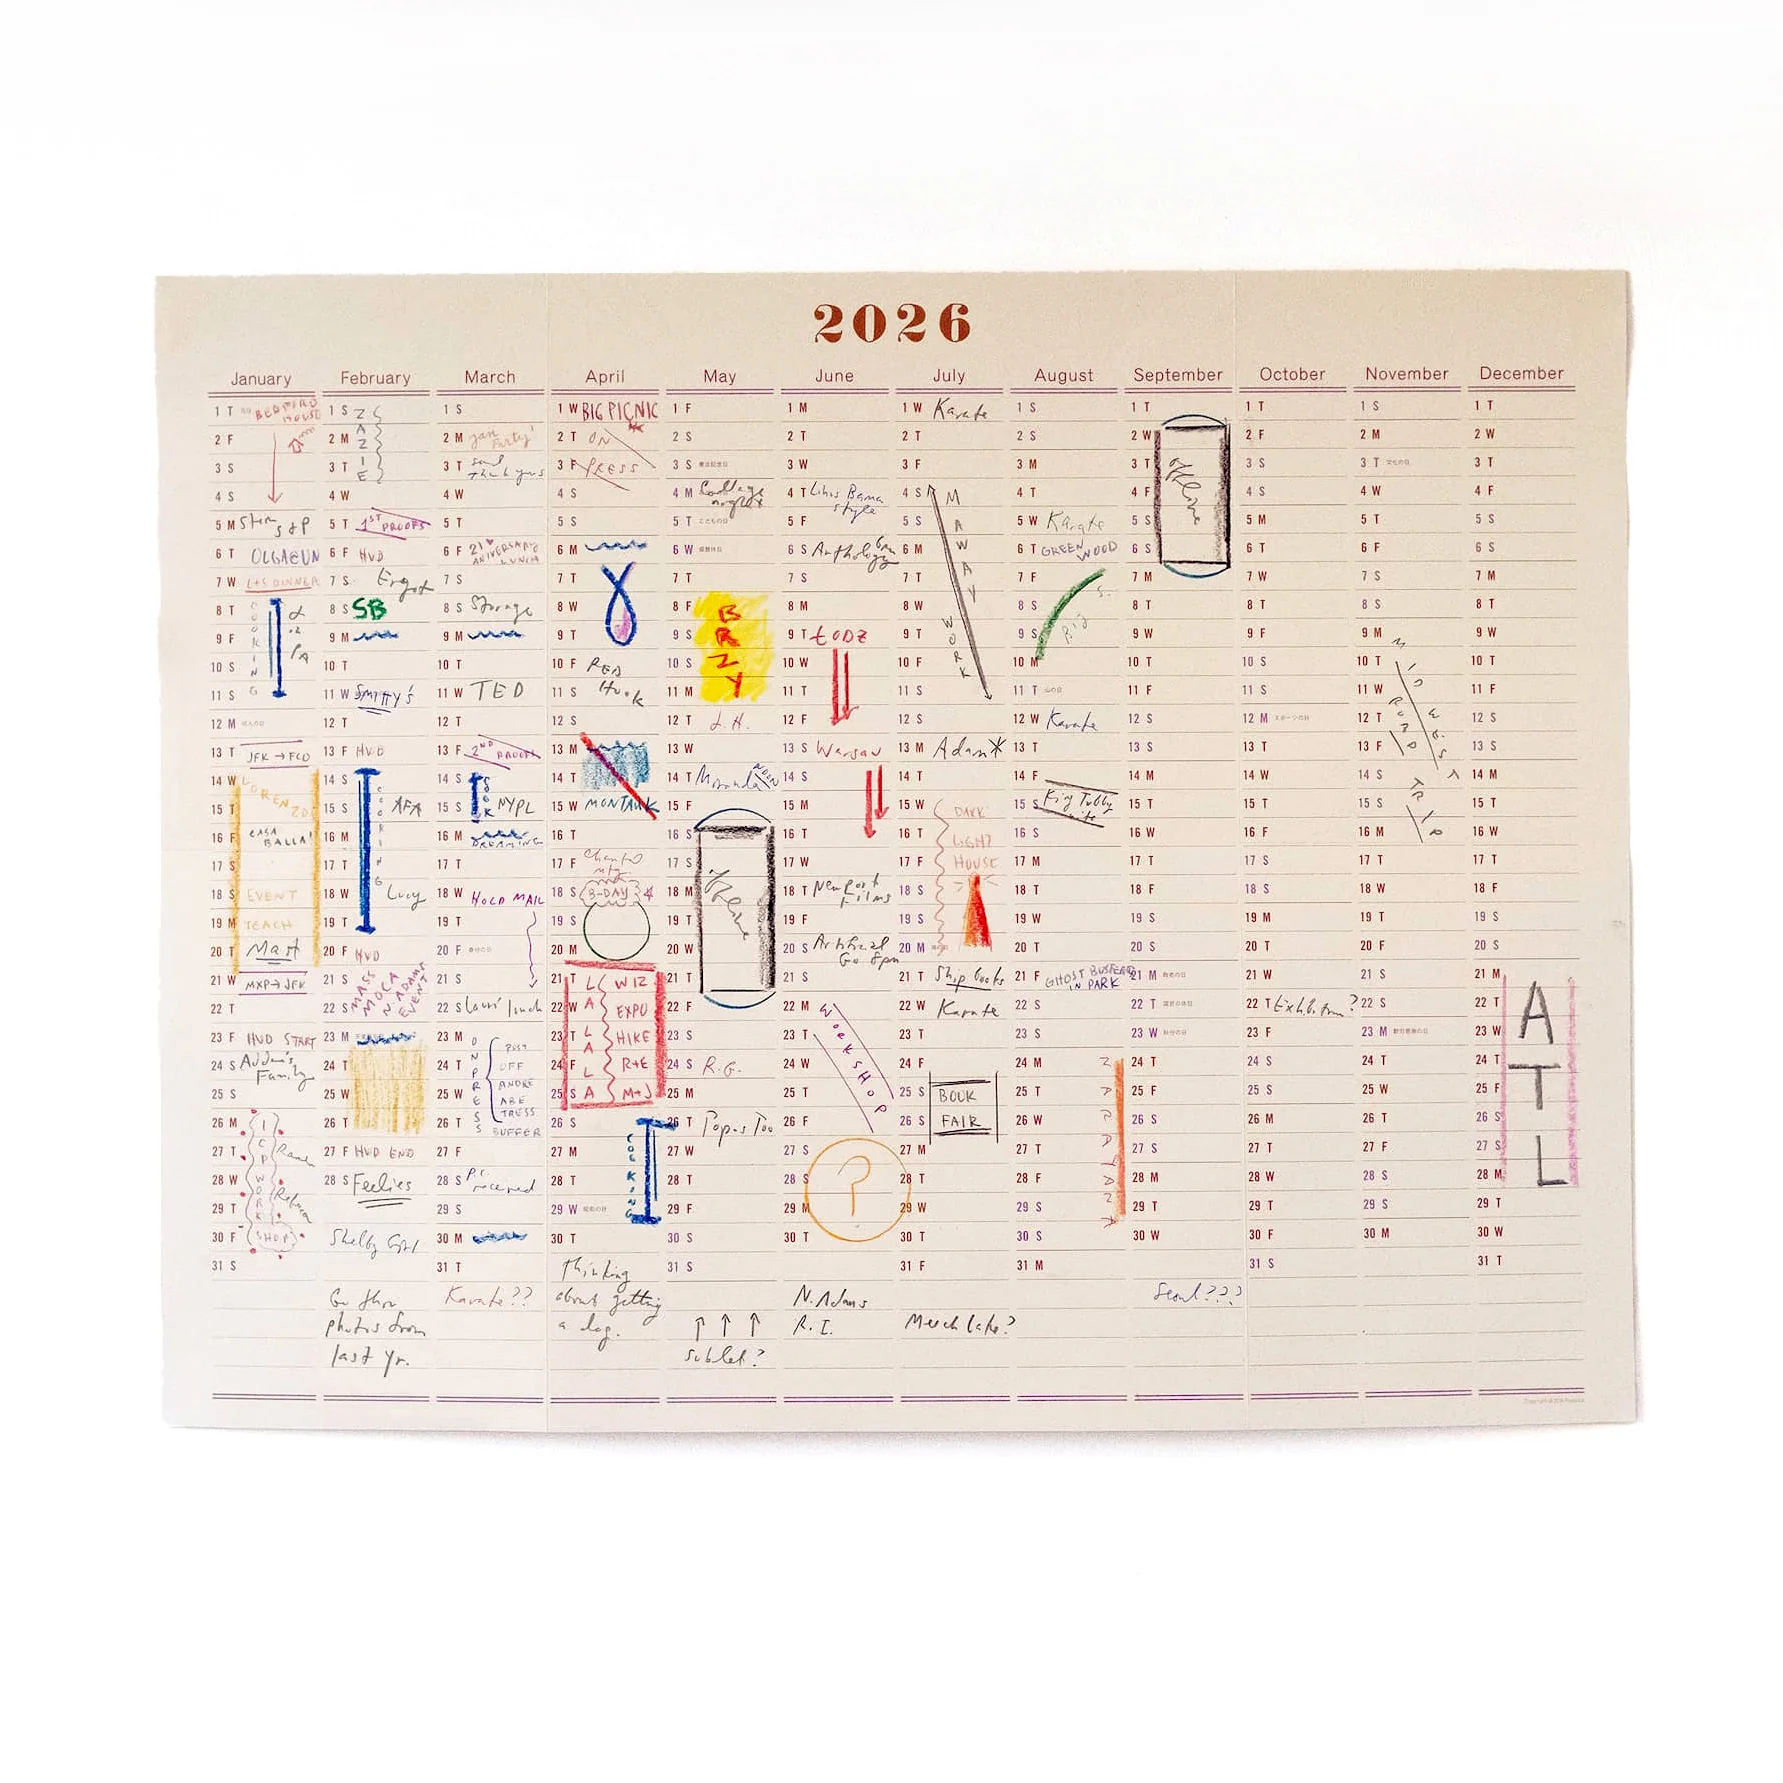 2026
January
1 T BEDFORD HOUSE
2 F
3 S
4 S
5 M
6 T OLGA@UN
7 W L+S DINNER
8 T
9 F
10 S
11 S
COOKING
12 M
13 T JFK→FCO
14 W LORENZO
15 T
16 F CASA BALLA!
17 S
18 S EVENT
19 M TEACH
20 T Mast
21 W MXP→JFK
22 T
23 F HVD START
24 S Addam's Family
25 S
26 M
27 T Ramen
28 W
29 T
30 F
ICP WORK SHOP
31 S
February
1 S
2 M
3 T
ZAZIE
4 W
5 T 1ST PROOFS
6 F HVD
7 S Ergot
8 S SB
9 M
10 T
11 W SMITTY'S
12 T
13 F HVD
14 S
15 S AFA
16 M
17 T
18 W Lucy
19 T
COOKING
20 F HVD
21 S MASS MOCA
22 S N. ADAMS EVENT
23 M
24 T
25 W
26 T
27 F HVD END
28 S Feelies
Go thru
photos from
last yr.
March
1 S
2 M
3 T send thank yous
4 W
5 T
6 F 21 ANIVERSARY LUNCH
7 S
8 S Storage
9 M
10 T
11 W TED
12 T
13 F 2ND PROOFS
14 S
15 S NYPL
BOOK
16 M DREAMING
17 T
18 W HOLD MAIL
19 T
20 F
21 S
22 S lunch
23 M
24 T
25 W
26 T
ON PRESS
POST
OFF
ANDRE
ABE
TRESS
BUFFER
27 F
28 S received
29 S
30 M
31 T
Karate??
April
1 W BIG PICNIC
2 T ON
3 F PRESS
4 S
5 S
6 M
7 T
8 W
9 T
10 F RED
11 S Hook
12 S
13 M
14 T
15 W MONTAUK
16 T
17 F
18 S B-DAY
19 S
20 M
21 T WIZ
22 W EXPO
23 T HIKE
24 F R+E
25 S M+J
ATLALLA
26 S
27 M
28 T
29 W
COOKING
30 T
Thinking
about getting
a dog.
May
1 F
2 S
3 S 憲法記念日
4 M Collage
5 T こどもの日
6 W 振替休日
7 T
8 F
9 S
10 S
11 M
BRZY
12 T J.H.
13 W
14 T Moranda
15 F
16 S
17 S
18 M
19 T
20 W
21 T
22 F
23 S
24 S R.G.
25 M
26 T Topos Too
27 W
28 T
29 F
30 S
31 S
↑ ↑ ↑
sublet?
June
1 M
2 T
3 W
4 T Bama style
5 F
6 S Anthology 6pm
7 S
8 M
9 T ŁODZ
10 W
11 T
12 F
13 S Warsaw
14 S
15 M
16 T
17 W
18 T Newport Films
19 F
20 S Artificial Go 8pm
21 S
22 M
23 T
24 W
25 T
26 F
WORKSHOP
27 S
28 S ?
29 M
30 T
N. Adams
R.I.
July
1 W Karate
2 T
3 F
4 S
5 S
6 M
7 T
8 W
9 T
10 F
11 S
MAWAY WORK
12 S
13 M Adam
14 T
15 W DARK
16 T LIGHT
17 F HOUSE
18 S
19 S
20 M
21 T Ship books
22 W Karate
23 T
24 F
25 S BOOK
26 S FAIR
27 M
28 T
29 W
30 T
31 F
Meech lake?
August
1 S
2 S
3 M
4 T
5 W Karate
6 T GREEN WOOD
7 F
8 S
9 S
10 M
11 T 山の日
12 W Karate
13 T
14 F
15 S King Tubby nite
16 S
17 M
18 T
19 W
20 T
21 F GHOST BUSTERS IN PARK
22 S
23 S
24 M
25 T
26 W
27 T
28 F
29 S
30 S
31 M
September
1 T
2 W
3 T
4 F
5 S
6 S
7 M
8 T
9 W
10 T
11 F
12 S
13 S
14 M
15 T
16 W
17 T
18 F
19 S
20 S
21 M 敬老の日
22 T 国民の休日
23 W 秋分の日
24 T
25 F
26 S
27 S
28 M
29 T
30 W
Seoul???
October
1 T
2 F
3 S
4 S
5 M
6 T
7 W
8 T
9 F
10 S
11 S
12 M スポーツの日
13 T
14 W
15 T
16 F
17 S
18 S
19 M
20 T
21 W
22 T Exhibition?
23 F
24 S
25 S
26 M
27 T
28 W
29 T
30 F
31 S
November
1 S
2 M
3 T 文化の日
4 W
5 T
6 F
7 S
8 S
9 M
10 T
11 W
12 T
13 F
14 S
15 S
16 M
TRIP
17 T
18 W
19 T
20 F
21 S
22 S
23 M 勤労感謝の日
24 T
25 W
26 T
27 F
28 S
29 S
30 M
December
1 T
2 W
3 T
4 F
5 S
6 S
7 M
8 T
9 W
10 T
11 F
12 S
13 S
14 M
15 T
16 W
17 T
18 F
19 S
20 S
21 M
22 T
23 W
24 T
25 F
26 S
27 S
28 M
ATL
29 T
30 W
31 T